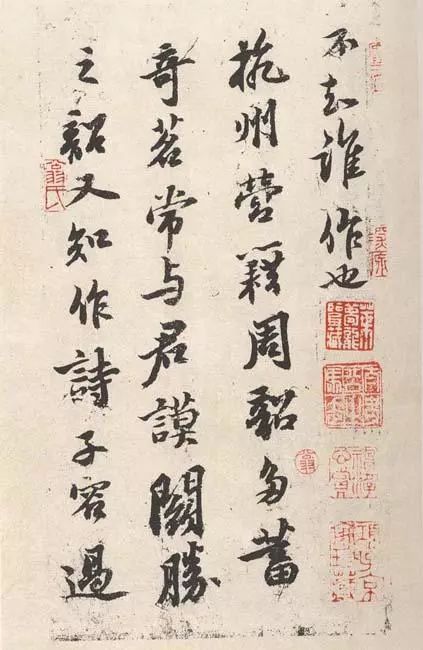 不知誰作也
杭州營籍周韶多蓄
奇茗常与君謨鬭勝
之韶又知作詩子容過